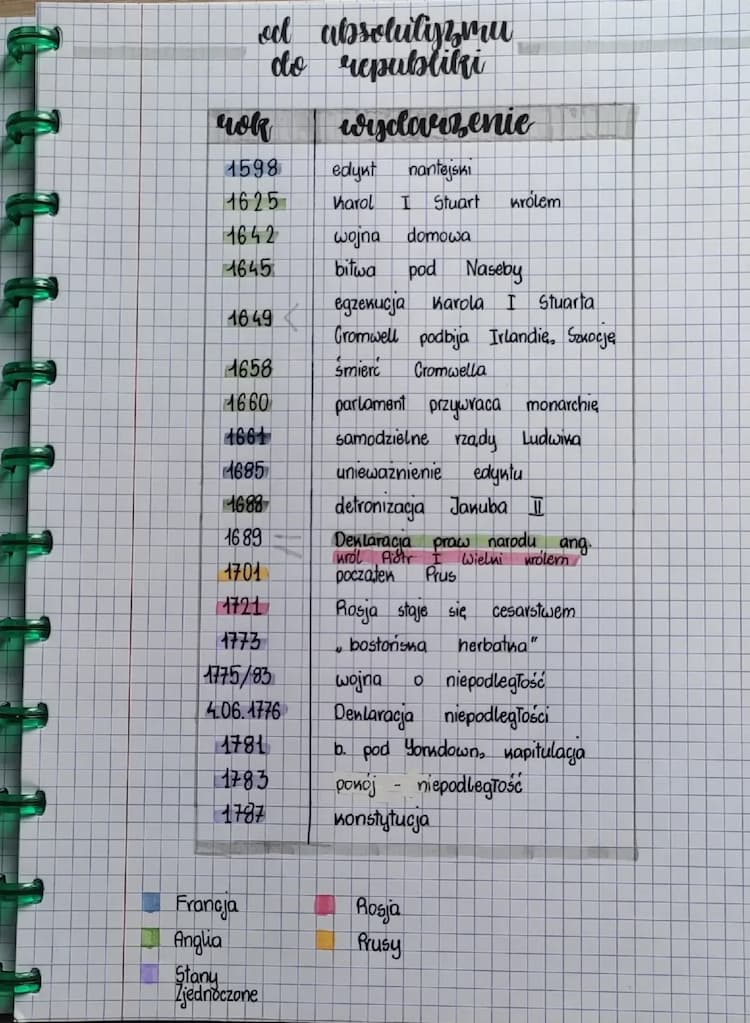 od absolutyzmu
do republiki
rok wydarzenie
1598 edykt nantejski
1625 Karol I Stuart królem
1642 wojna domowa
1645 bitwa pod Naseby
egzekucja Karola I Stuarta
1649 < Cromwell podbija Irlandię, Szkocję
1658 śmierć Cromwella
1660 parlament przywraca monarchię
1661 samodzielne rządy Ludwika
1685 unieważnienie edyktu
1688 detronizacja Jakuba II
1689 Deklaracja praw narodu ang.
król Piotr I Wielki królem
1701 początek Prus
1721 Rosja staje się cesarstwem
1773 „bostońska herbatka"
1775/83 wojna o niepodległość
4.06.1776 Deklaracja niepodległości
1781 b. pod Yorkdown, kapitulacja
1783 pokój - niepodległość
1787 konstytucja
Francja
Anglia
Stany
Zjednoczone
Rosja
Prusy